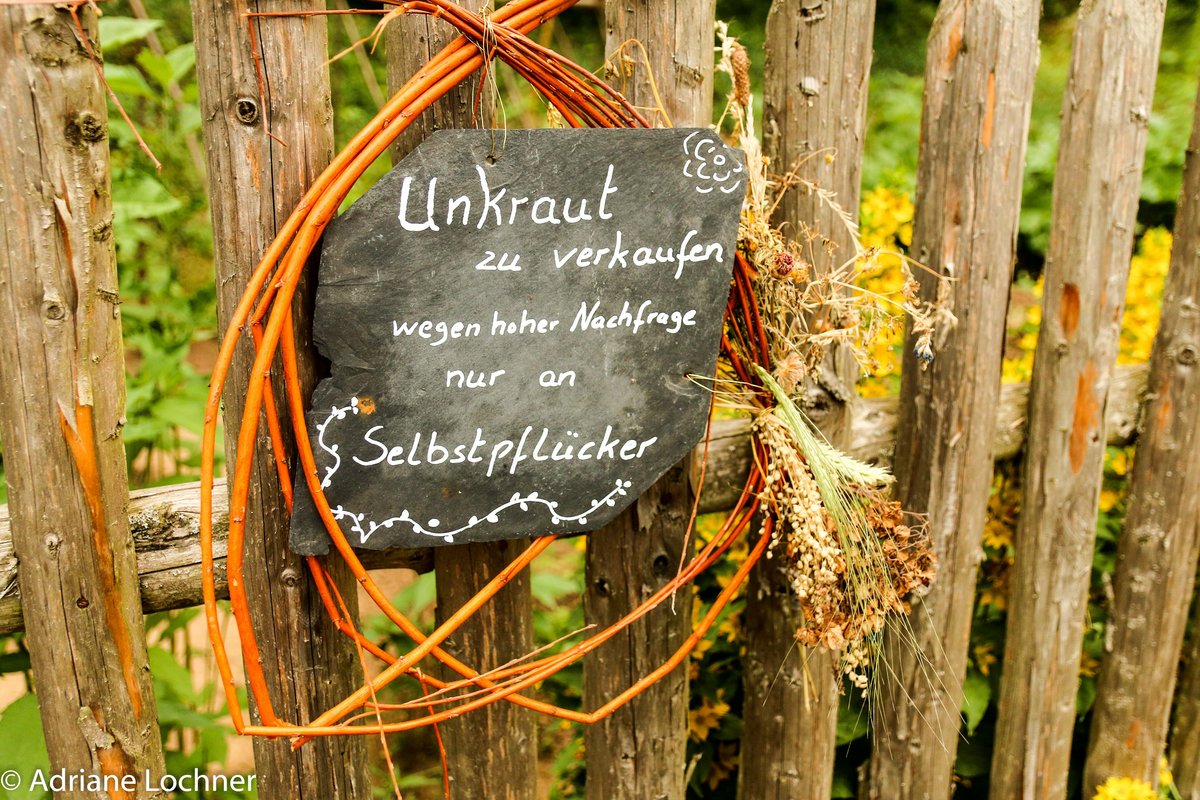 Unkraut
zu verkaufen
wegen hoher Nachfrage
nur an
Selbstpflücker
© Adriane Lochner